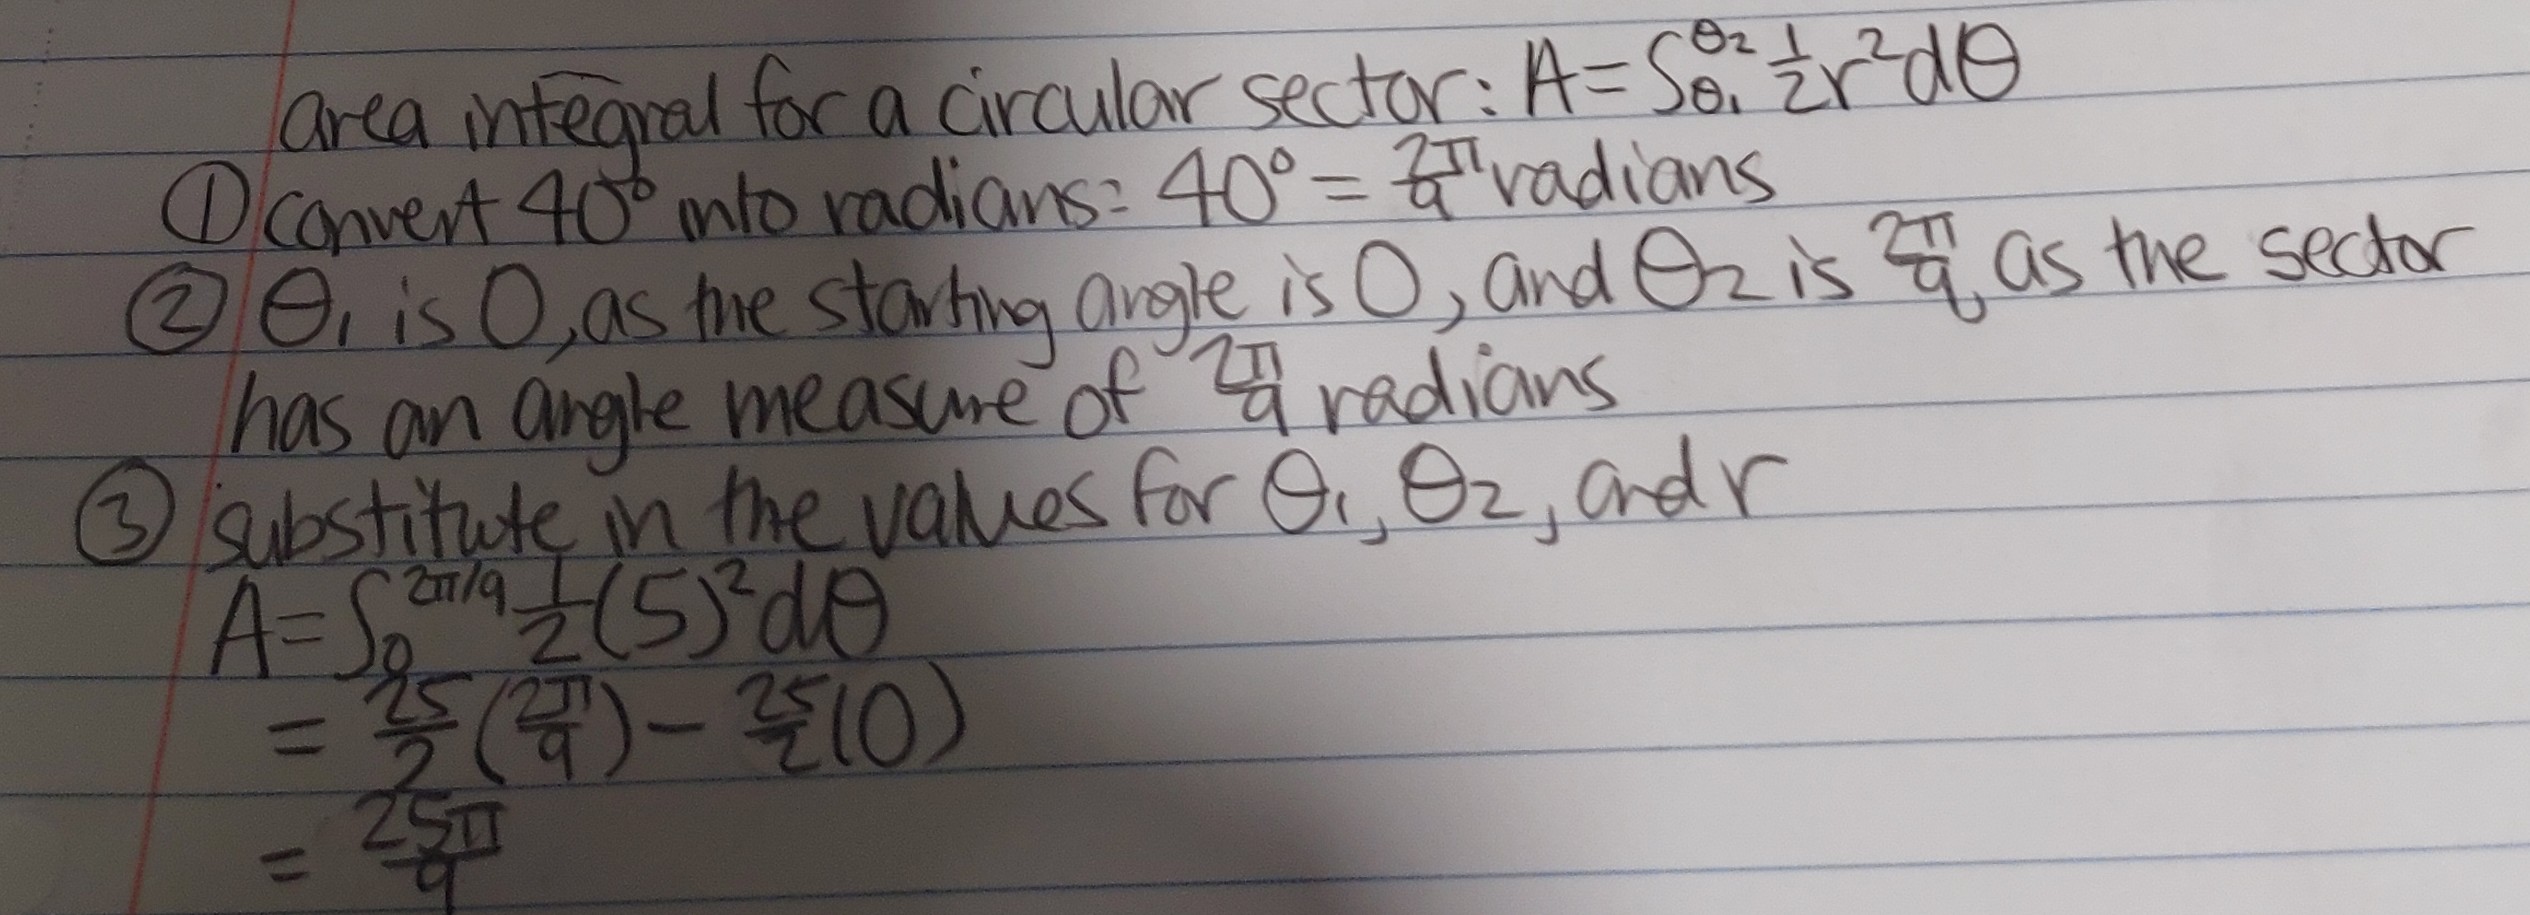 area integral for a circular sector: A = ∫θ₁^θ₂ 1/2 r² dθ
① convert 40° into radians: 40° = 2π/9 radians
② θ₁ is 0, as the starting angle is 0, and θ₂ is 2π/9, as the sector
has an angle measure of 2π/9 radians
③ substitute in the values for θ₁, θ₂, and r
A = ∫0^2π/9 1/2 (5)² dθ
= 25/2 (2π/9) - 25/2 (0)
= 25π/9